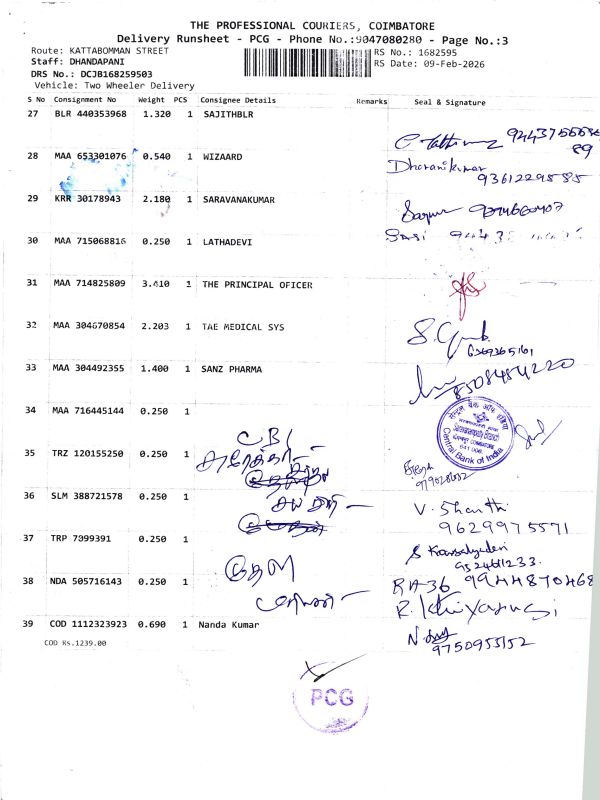 THE PROFESSIONAL COURIERS, COIMBATORE
Delivery Runsheet - PCG - Phone No.:9047080280 - Page No.:3
Route: KATTABOMMAN STREET
RS No.: 1682595
Staff: DHANDAPANI
RS Date: 09-Feb-2026
DRS No.: DCJB168259503
Vehicle: Two Wheeler Delivery
S No Consignment No Weight PCS Consignee Details Remarks Seal & Signature
27 BLR 440353968 1.320 1 SAJITHBLR
28 MAA 653301076 0.540 1 WIZAARD
Dharanikumar
9361229585
29 KRR 30178943 2.180 1 SARAVANAKUMAR
30 MAA 715068816 0.250 1 LATHADEVI
Sasi
31 MAA 714825809 3.410 1 THE PRINCIPAL OFICER
32 MAA 304670854 2.203 1 TAE MEDICAL SYS
6369265161
33 MAA 304492355 1.400 1 SANZ PHARMA
8508484220
34 MAA 716445144 0.250 1
CBI
Central Bank of India
35 TRZ 120155250 0.250 1
36 SLM 388721578 0.250 1
V. Shanthi
9629975571
37 TRP 7099391 0.250 1
38 NDA 505716143 0.250 1
9944870468
39 COD 1112323923 0.690 1 Nanda Kumar
9750955152
COD Rs.1239.00
PCG